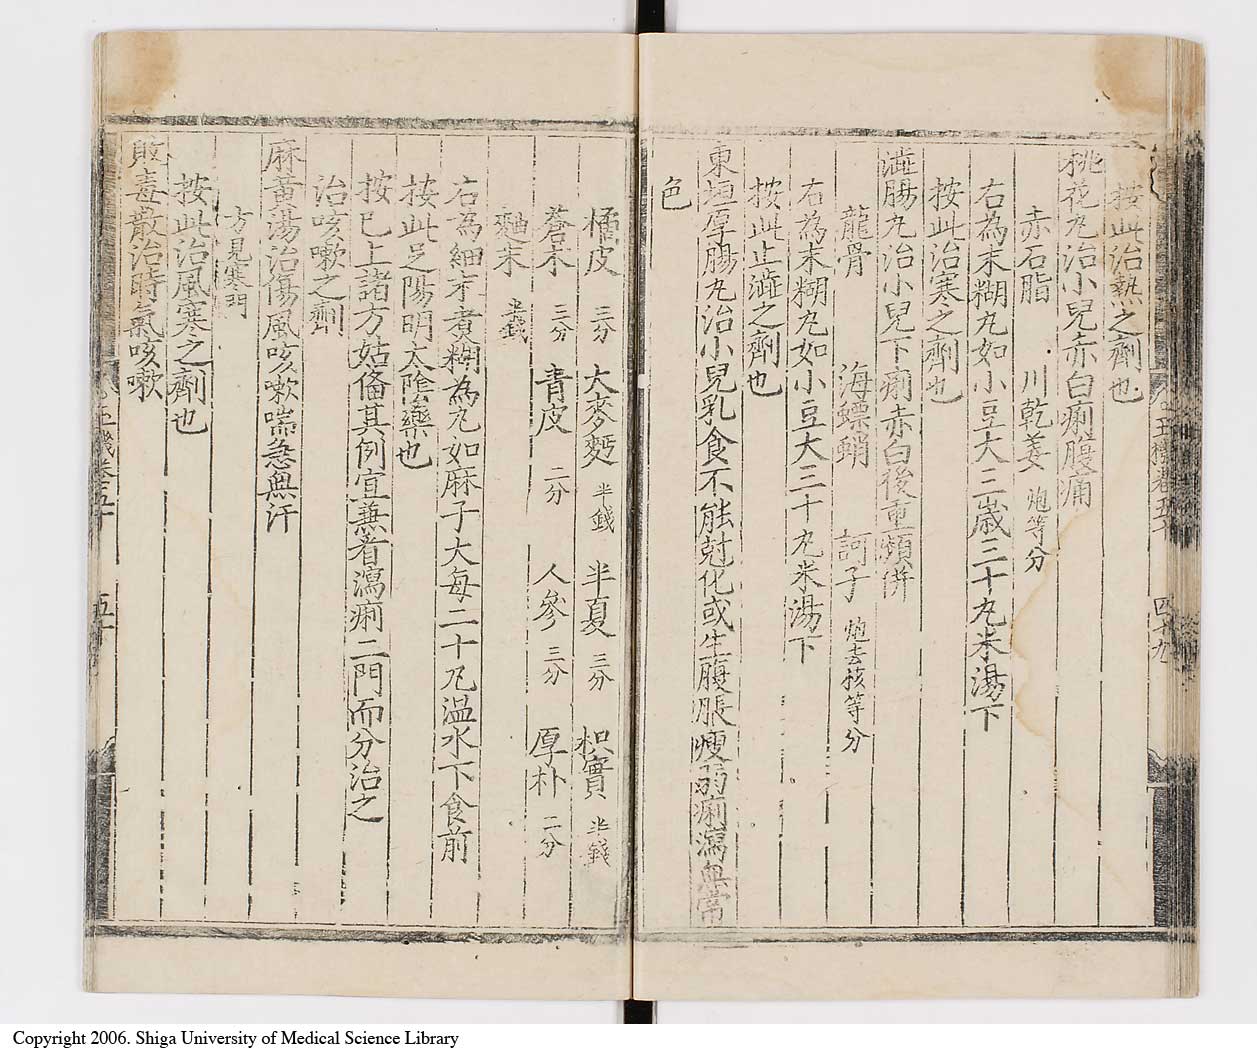 按此治熱之劑也
桃花丸治小兒赤白痢腹痛
赤石脂 川乾姜 炮等分
右為末糊丸如小豆大三歲三十丸米湯下
按此治寒之劑也
澁腸丸治小兒下痢赤白後重頻併
龍骨 海螵蛸 訶子 炮去核等分
右為末糊丸如小豆大三十丸米湯下
按此止澁之劑也
東垣厚腸丸治小兒乳食不能尅化或生腹脹瘦弱痢瀉無常
色
四十九
橘皮 三分 大麥麪 半錢 半夏 三分 枳實 半錢
蒼朮 二分 青皮 二分 人參 三分 厚朴 二分
麯末 半錢
右為細末煮糊為丸如麻子大每二十丸温水下食前
按此足陽明太陰藥也
按已上諸方姑俻其例宜兼看瀉痢二門而分治之
治咳嗽之劑
麻黃湯治傷風咳嗽喘急無汗
方見寒門
按此治風寒之劑也
敗毒散治時氣咳嗽
五十
Copyright 2006. Shiga University of Medical Science Library